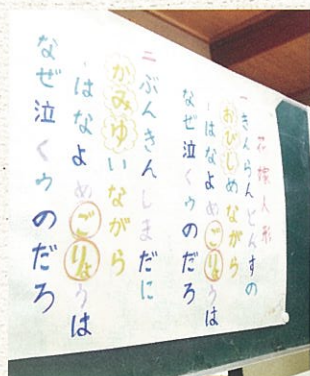 花嫁人形
一きんらんどんすの
おびしめながら
はなよめごりょうは
なぜ泣くゥのだろ
二ぶんきんしまだに
かみゆいながら
はなよめごりょうは
なぜ泣くゥのだろ